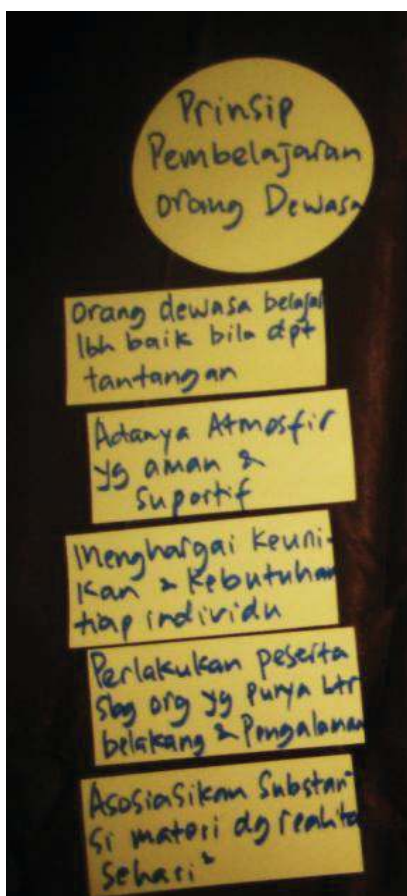 Prinsip
Pembelajaran
Orang Dewasa
Orang dewasa belajar
lbh baik bila dpt
tantangan
Adanya Atmosfir
yg aman &
Suportif
Menghargai keuni-
kan & kebutuhan
tiap individu
Perlakukan peserta
sbg org yg punya ltr
belakang & Pengalaman
Asosiasikan Substan-
si materi dg realita
sehari²